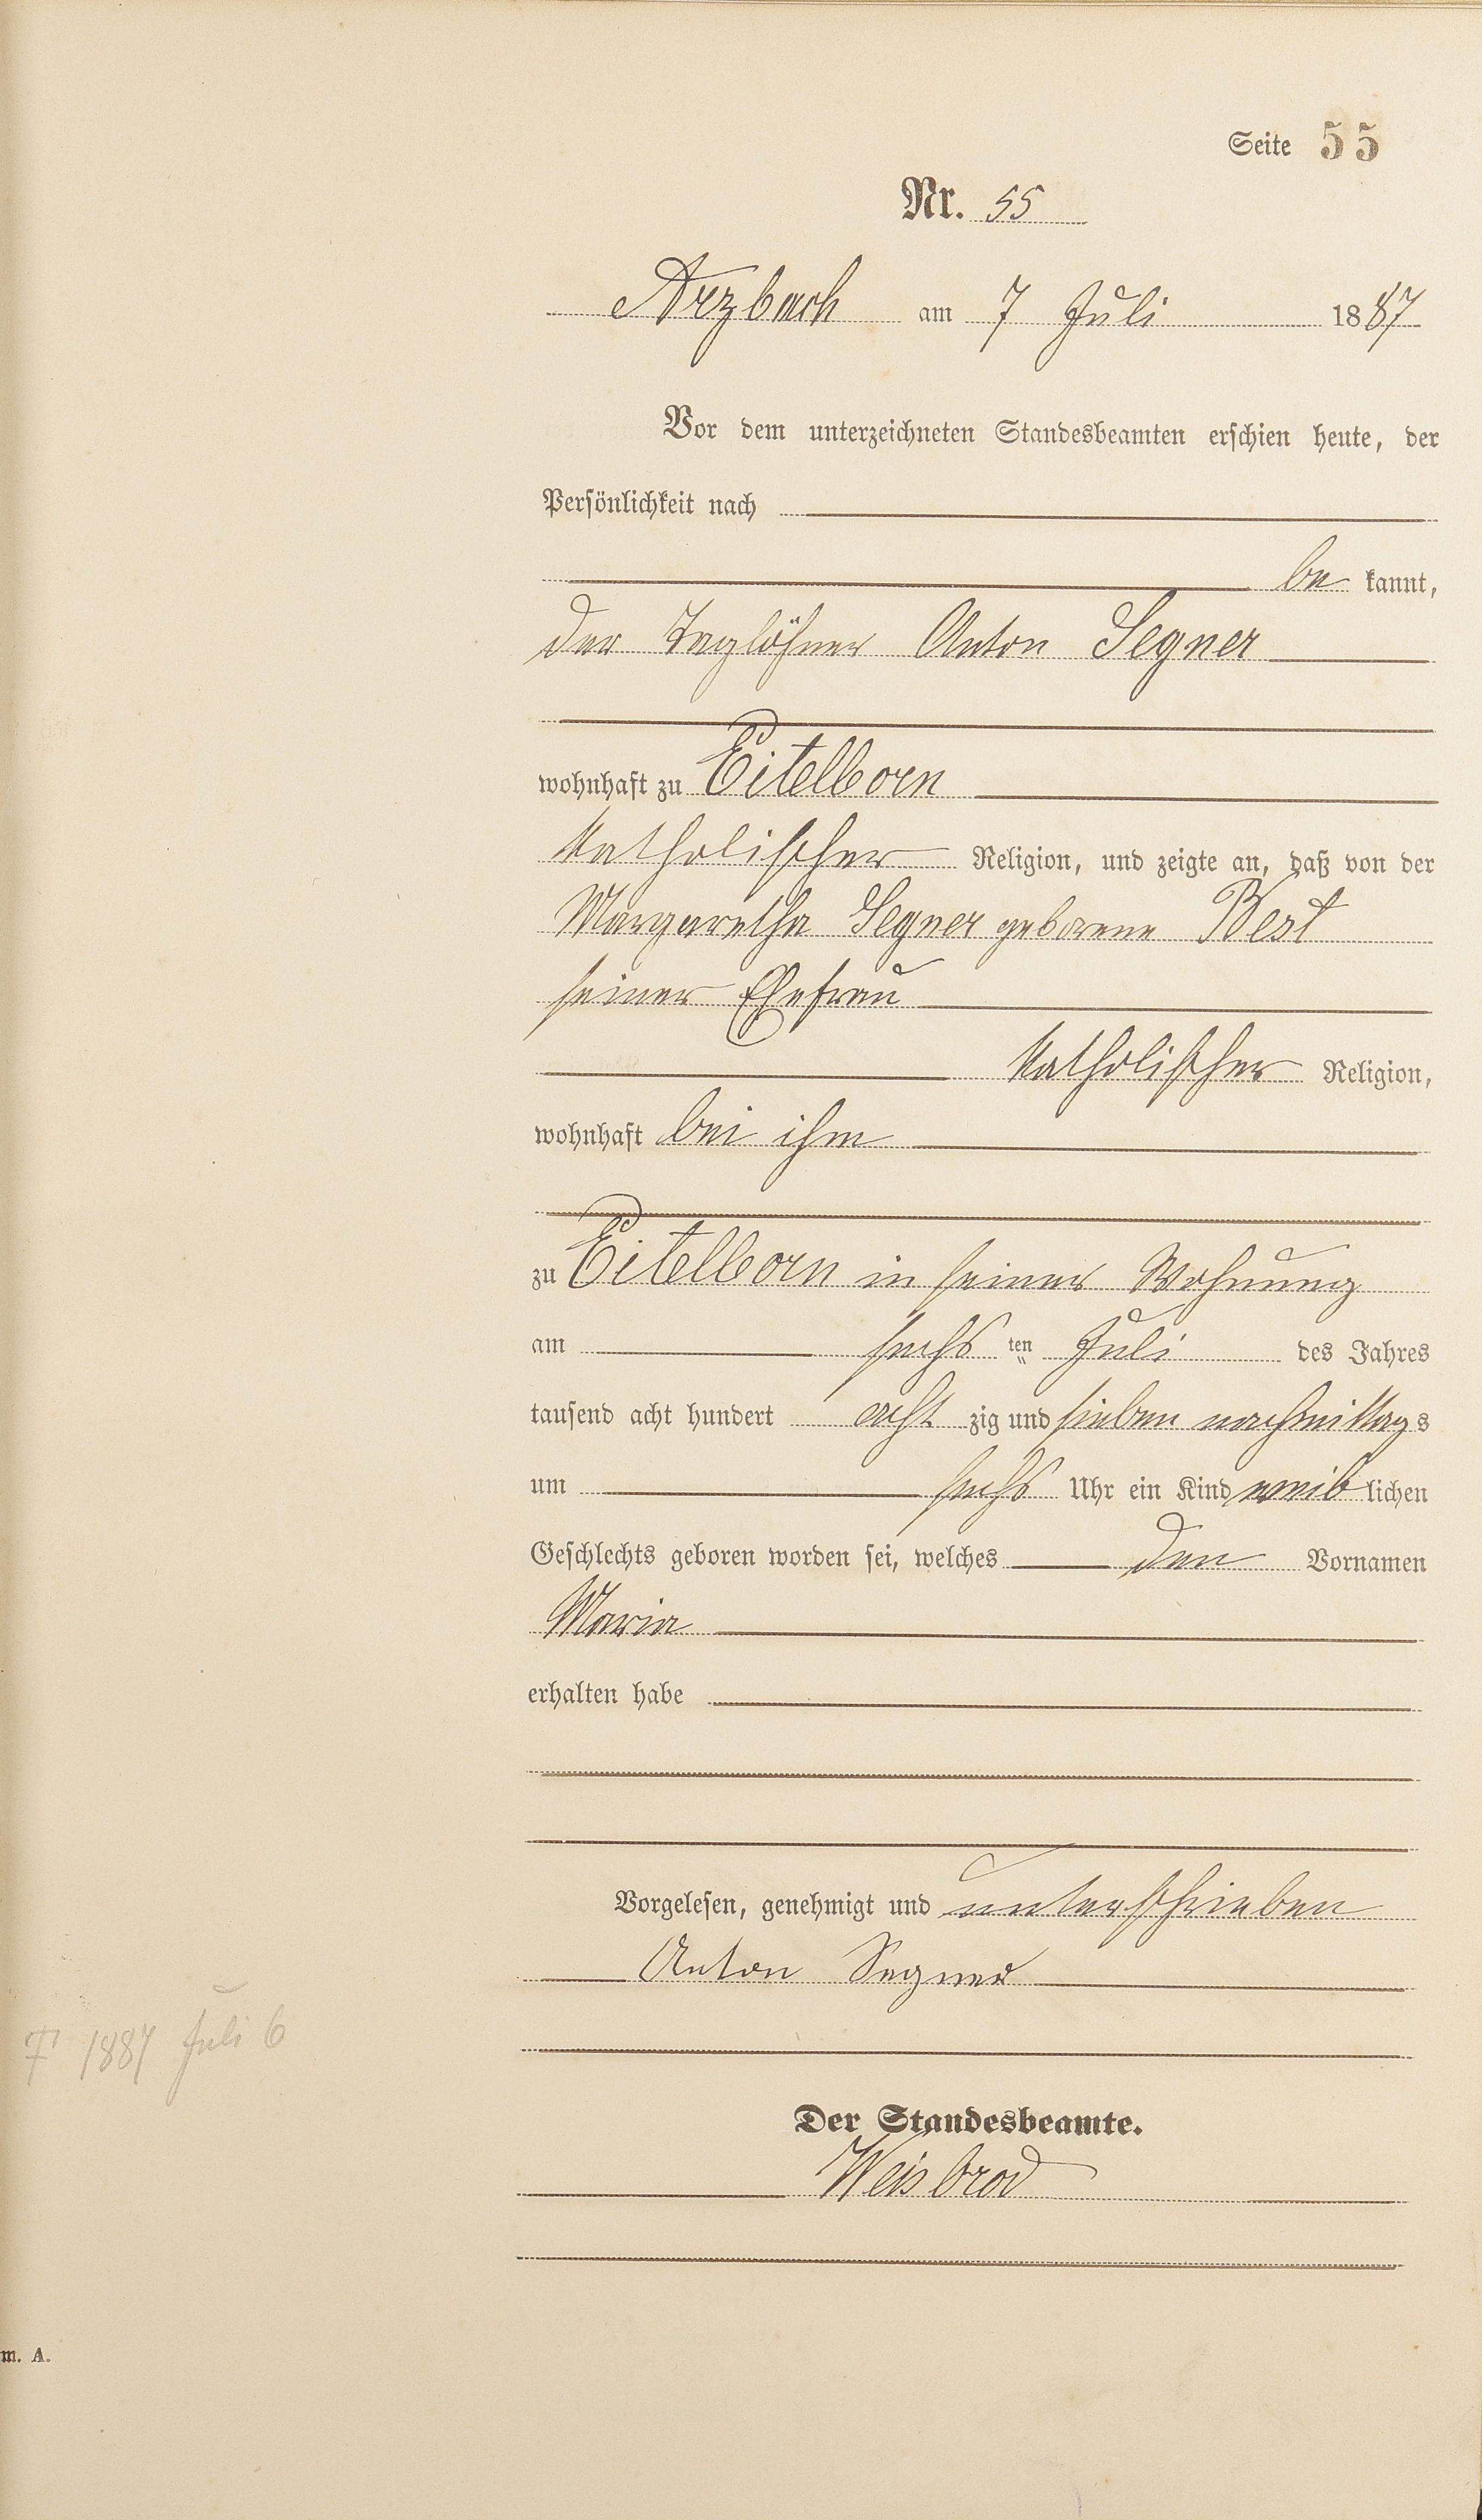 Seite 55
Nr. 55
Arzbach am 7 Juli 1887
Vor dem unterzeichneten Standesbeamten erschien heute, der
Persönlichkeit nach
be kannt,
der Taglöhner Anton Segner
wohnhaft zu Eitelborn
katholischer Religion, und zeigte an, daß von der
Margaretha Segner geborene Best
seiner Ehefrau
katholischer Religion,
wohnhaft bei ihm
zu Eitelborn in seiner Wohnung
am sechs ten Juli des Jahres
tausend acht hundert acht zig und sieben nachmittags
um sechs Uhr ein Kind weib lichen
Geschlechts geboren worden sei, welches den Vornamen
Maria
erhalten habe
Vorgelesen, genehmigt und unterschrieben
Anton Segner
F 1887 Juli 6
Der Standesbeamte.
Weisbrod
m. A.